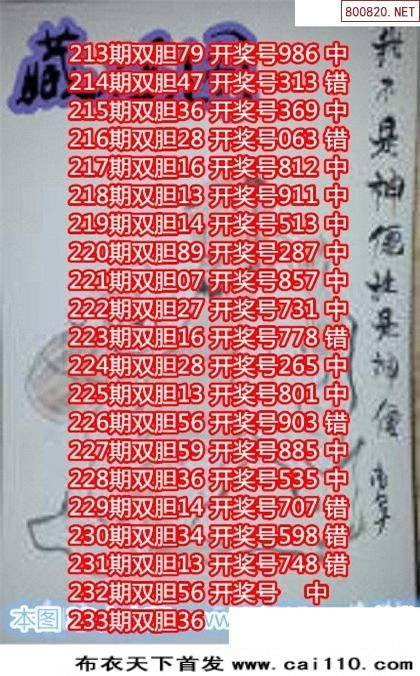 800820.NET
213期双胆79 开奖号986 中
214期双胆47 开奖号313 错
215期双胆36 开奖号369 中
216期双胆28 开奖号063 错
217期双胆16 开奖号812 中
218期双胆13 开奖号911 中
219期双胆14 开奖号513 中
220期双胆89 开奖号287 中
221期双胆07 开奖号857 中
222期双胆27 开奖号731 中
223期双胆16 开奖号778 错
224期双胆28 开奖号265 中
225期双胆13 开奖号801 中
226期双胆56 开奖号903 错
227期双胆59 开奖号885 中
228期双胆36 开奖号535 中
229期双胆14 开奖号707 错
230期双胆34 开奖号598 错
231期双胆13 开奖号748 错
232期双胆56 开奖号 中
233期双胆36
我不是神仙
本图
布衣天下首发 www.cai110.com